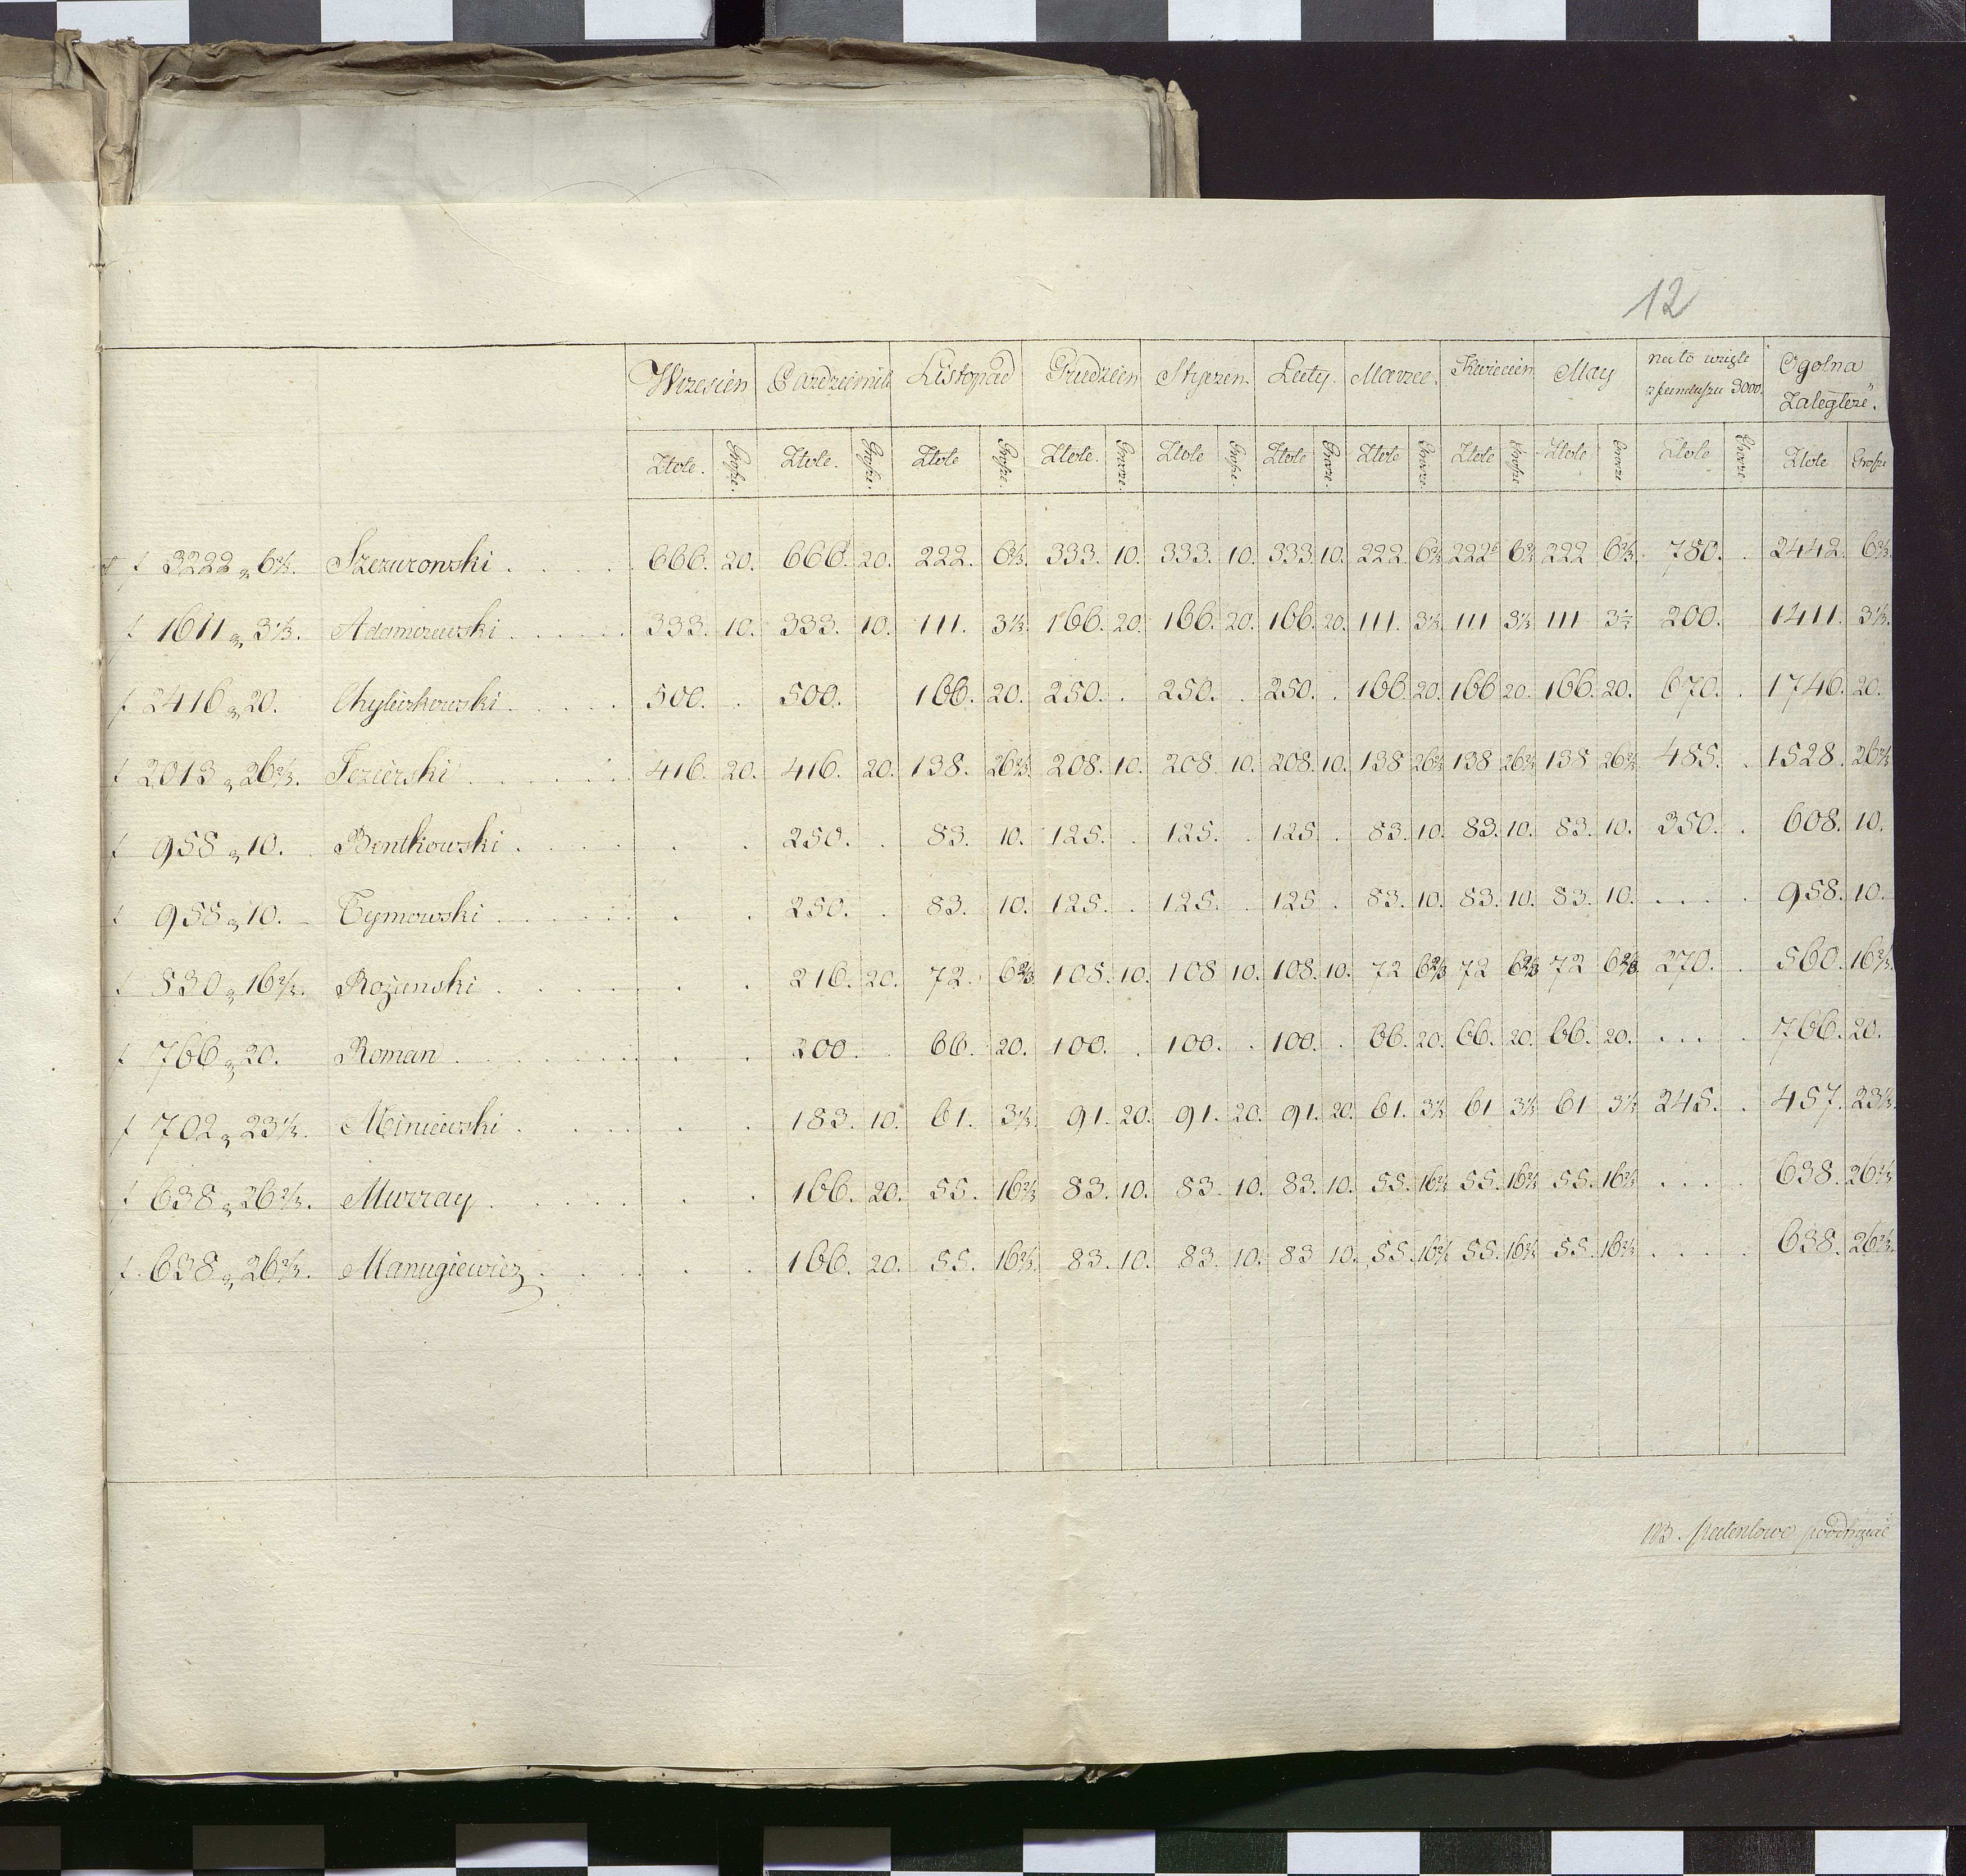 12
Wrzesień Pazdziernik Listopad Grudzień Styczeń Luty. Marzec. Kwiecień May na to wzięte Ogolna
z funduszu 3000. Zaległość.
Złote. Grosze. Złote. Grosze. Złote Grosze. Złote. Grosze. Złote Grosze. Złote Grosze. Złote Grosze. Złote Grosze Złote Grosze Złote Grosze Złote Grosze
f 3222 g 6⅔. Szczurowski . . . . 666. 20. 666. 20. 222. 6⅔. 333. 10. 333. 10. 333 10. 222 6⅔ 222 6⅔ 222 6⅔. 780. . 2442. 6⅔.
f 1611 g 3⅓. Adamczewski . . . . 333. 10. 333. 10. 111. 3⅓. 166. 20. 166. 20. 166. 20. 111. 3⅓ 111 3⅓ 111 3⅓ 200. 1411. 3⅓.
f 2416 g 20. Chyliczkowski . . . . 500. . 500. 166. 20. 250. . 250. . 250. . 166. 20. 166 20. 166. 20. 670. . 1746. 20.
f 2013 g 26⅔. Jezierski . . . . 416. 20. 416. 20. 138. 26⅔. 208. 10. 208 10. 208. 10. 138 26⅔ 138 26⅔ 138 26⅔ 485. . 1528. 26⅔
f 958 g 10. Bentkowski . . . . . . 250. . 83. 10. 125. . 125. . 125 . 83. 10. 83. 10. 83. 10. 350. . 608. 10.
f 958 g 10. Tymowski . . . . . . 250. . 83. 10. 125. . 125. . 125 . 83. 10. 83. 10. 83. 10. . . . . 958. 10.
f 830 g 16⅔. Rożanski . . . . . . 216. 20. 72. 6⅔ 108. 10. 108 10. 108. 10. 72 6⅔ 72 6⅔ 72 6⅔. 270. . 560. 16⅔.
f 766 g 20. Roman . . . . . . 200. . 66. 20. 100. . 100. . 100. . 66. 20. 66. 20. 66. 20. . . . . 766. 20.
f 702 g 23⅓. Miniewski . . . . . . 183. 10. 61. 3⅓. 91. 20. 91. 20. 91. 20. 61. 3⅓ 61 3⅓ 61 3⅓ 245. . 457. 23⅓.
f 638 g 26⅔. Murray . . . . . . 166. 20. 55. 16⅔ 83. 10. 83. 10. 83. 10. 55. 16⅔ 55. 16⅔ 55. 16⅔ . . . . 638. 26⅔
f 638 g 26⅔. Manugiewicz . . . . . . 166. 20. 55. 16⅔. 83. 10. 83. 10. 83 10. 55. 16⅔ 55. 16⅔ 55. 16⅔ . . . . 638. 26⅔.
patentowe